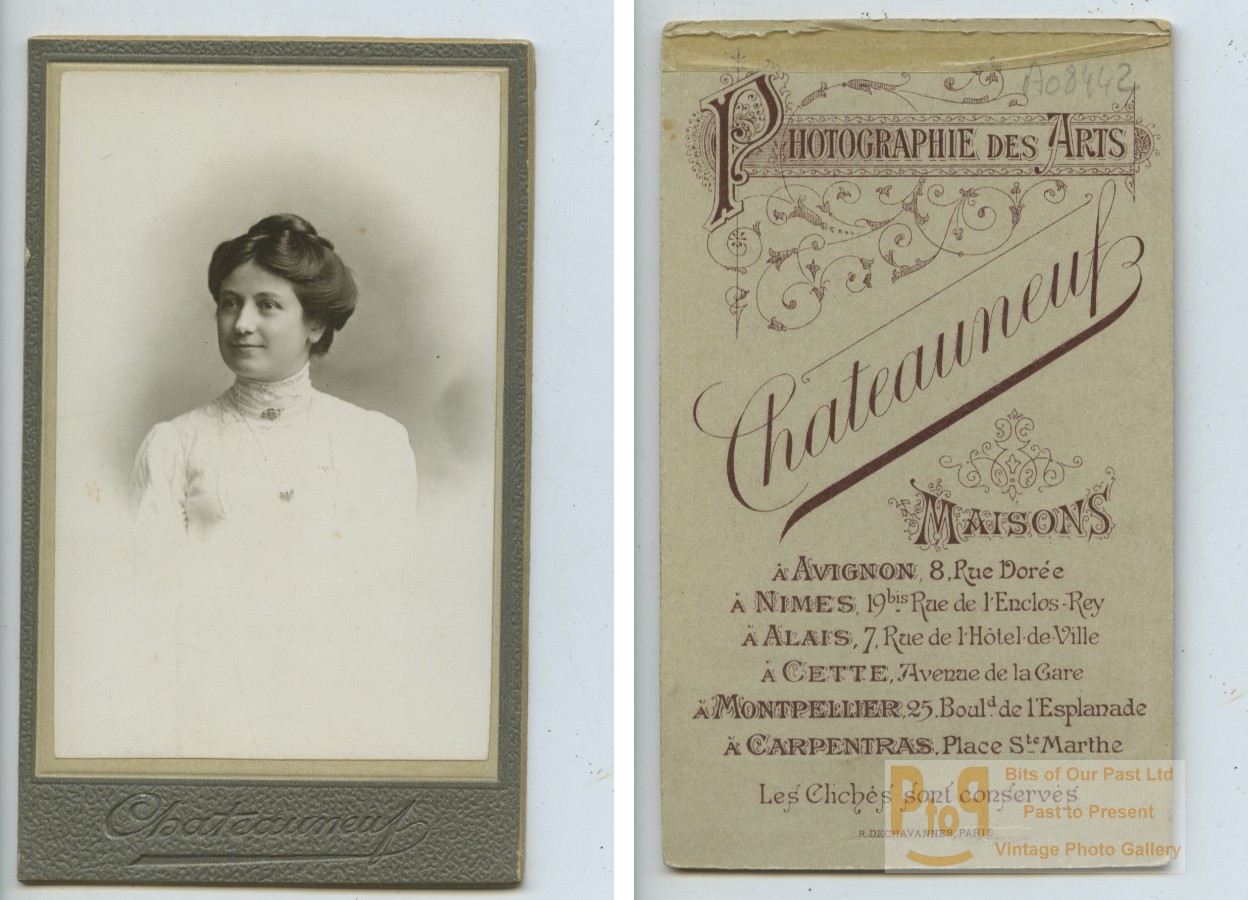 Chateauneuf
A08442
PHOTOGRAPHIE DES ARTS
Chateauneuf
MAISONS
À AVIGNON, 8, Rue Dorée
À NIMES, 19bis Rue de l'Enclos-Rey
À ALAIS, 7, Rue de l'Hôtel-de-Ville
À CETTE, Avenue de la Gare
À MONTPELLIER, 25, Bould de l'Esplanade
À CARPENTRAS, Place Ste Marthe
Les Clichés sont conservés
R. DECHAVANNES, PARIS
PtoP
Bits of Our Past Ltd
Past to Present
Vintage Photo Gallery